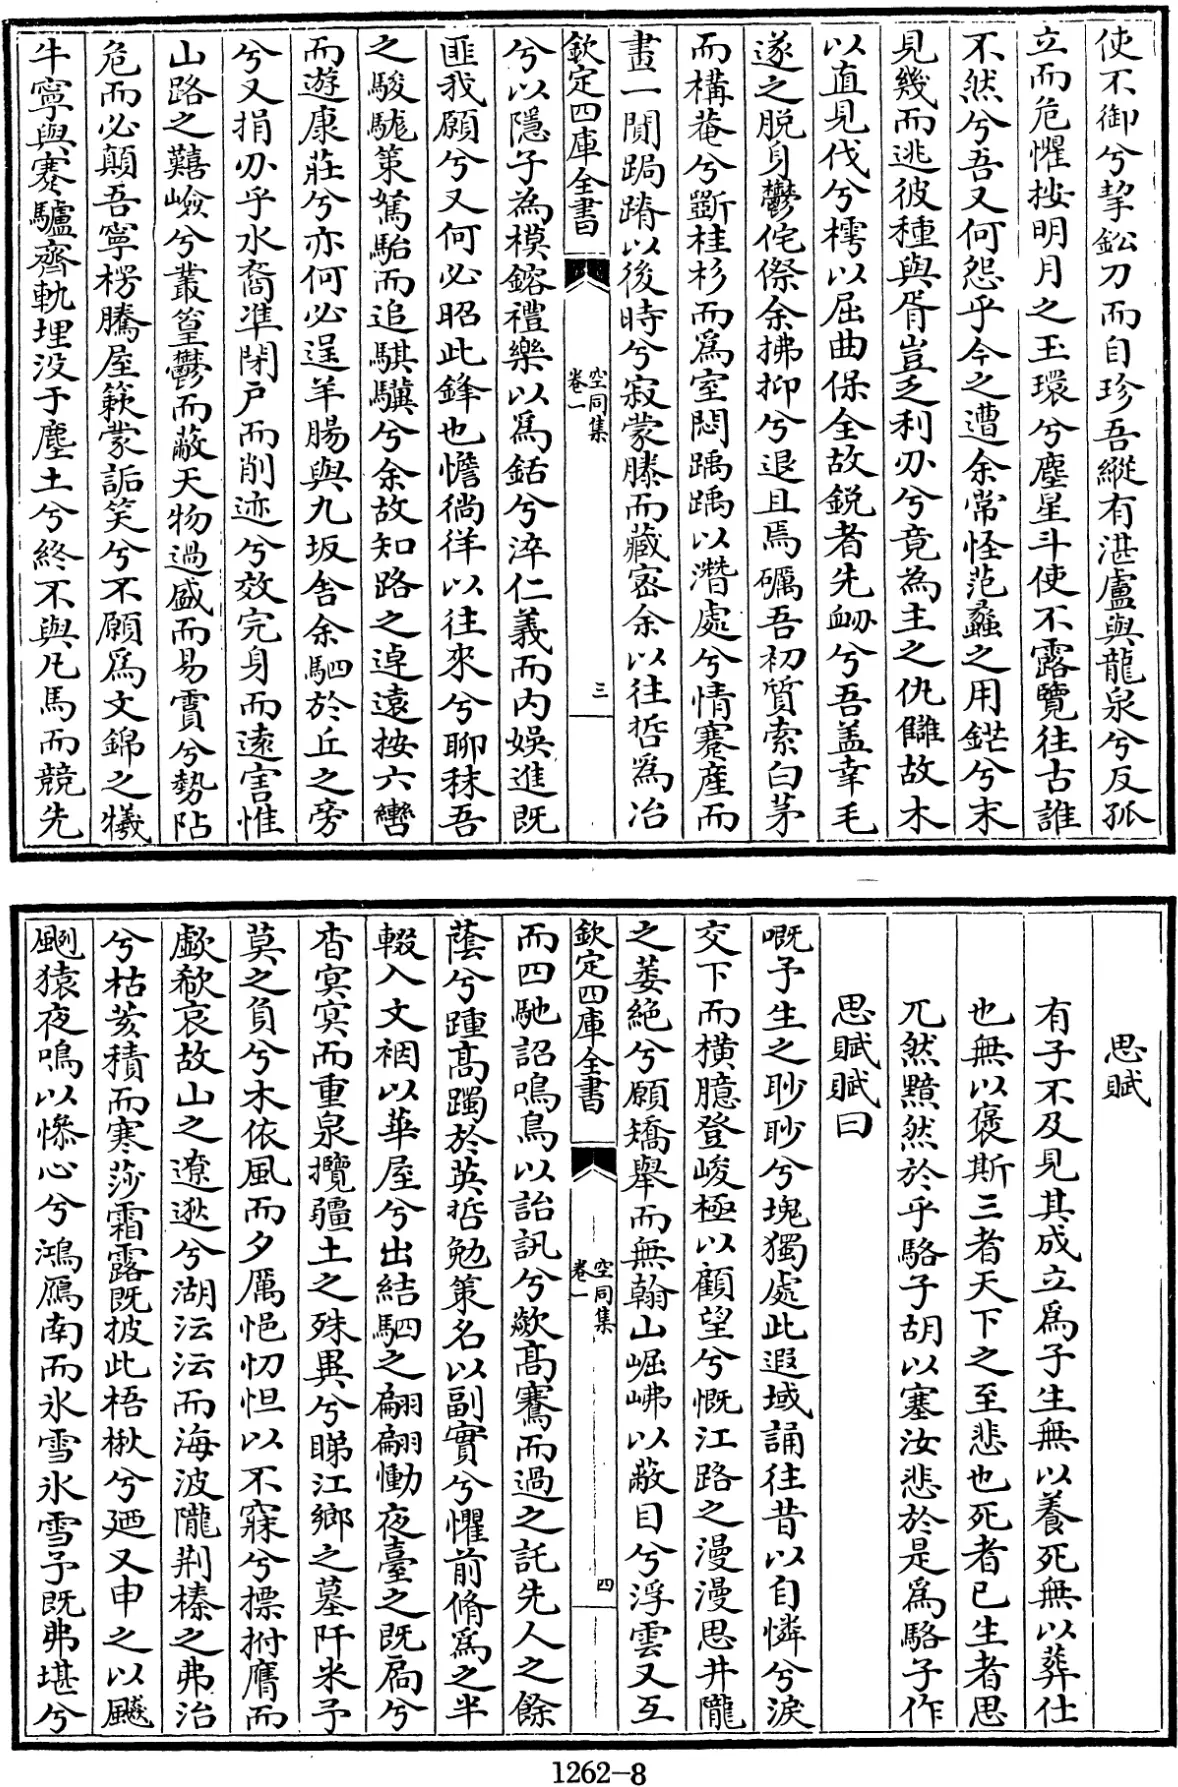 使不御兮挈鈆刀而自珍吾縱有湛盧與龍泉兮反孤
立而危懼按明月之玉環兮塵星斗使不露覽往古誰
不然兮吾又何怨乎今之遭余常怪范蠡之用鋩兮未
見幾而逃彼種與胥豈乏利刅兮竟為主之仇讎故木
以直見伐兮樗以屈曲保全故鋭者先衂兮吾盖幸毛
遂之脱身鬱侘傺余拂抑兮退且焉礪吾初質索白茅
而構菴兮斵桂杉而爲室悶踽踽以潛處兮情蹇産而
畫一閴跼蹐以後時兮寂蒙縢而藏宻余以往哲爲冶
欽定四庫全書
空同集
卷一
三
兮以隱子為模鎔禮樂以爲銛兮淬仁義而内娛進既
匪我願兮又何必昭此鋒也憺徜徉以往來兮聊秣吾
之駿駹策駑駘而追騏驥兮余故知路之逴遠按六轡
而遊康莊兮亦何必逞羊腸與九坂舎余駟於丘之旁
兮又捐刅乎水裔凖閉戸而削迹兮效完身而逺害惟
山路之囏嶮兮叢篁鬱而蔽天物過盛而易霣兮勢阽
危而必顛吾寧楞騰屋簌蒙詬笑兮不願爲文錦之犧
牛寧與蹇驢齊軌埋没于塵土兮終不與凡馬而競先
思賦
有子不及見其成立爲子生無以養死無以葬仕
也無以褒斯三者天下之至悲也死者已生者思
兀然黯然於乎駱子胡以塞汝悲於是爲駱子作
思賦賦曰
嘅予生之眇眇兮塊獨處此遐域誦往昔以自憐兮淚
交下而横臆登峻極以顧望兮慨江路之漫漫思井隴
之萎絶兮願矯舉而無翰山崛岪以蔽目兮浮雲又互
欽定四庫全書
空同集
卷一
四
而四馳詔鳴鳥以詒訊兮歘髙騫而過之託先人之餘
蔭兮踵髙躅於英哲勉策名以副實兮懼前脩爲之半
輟入文裀以華屋兮出結駟之翩翩慟夜臺之既扃兮
杳冥冥而重泉攬疆土之殊異兮睇江鄉之墓阡米予
莫之負兮木依風而夕厲悒忉怛以不寐兮摽拊膺而
歔欷哀故山之遼逖兮湖沄沄而海波隴荆榛之弗治
兮枯荄積而寒莎霜露既披此梧楸兮廼又申之以飈
颲猿夜鳴以慘心兮鴻鴈南而氷雪氷雪予既弗堪兮
1262-8